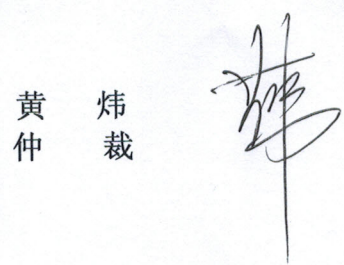 黄 炜
仲 裁